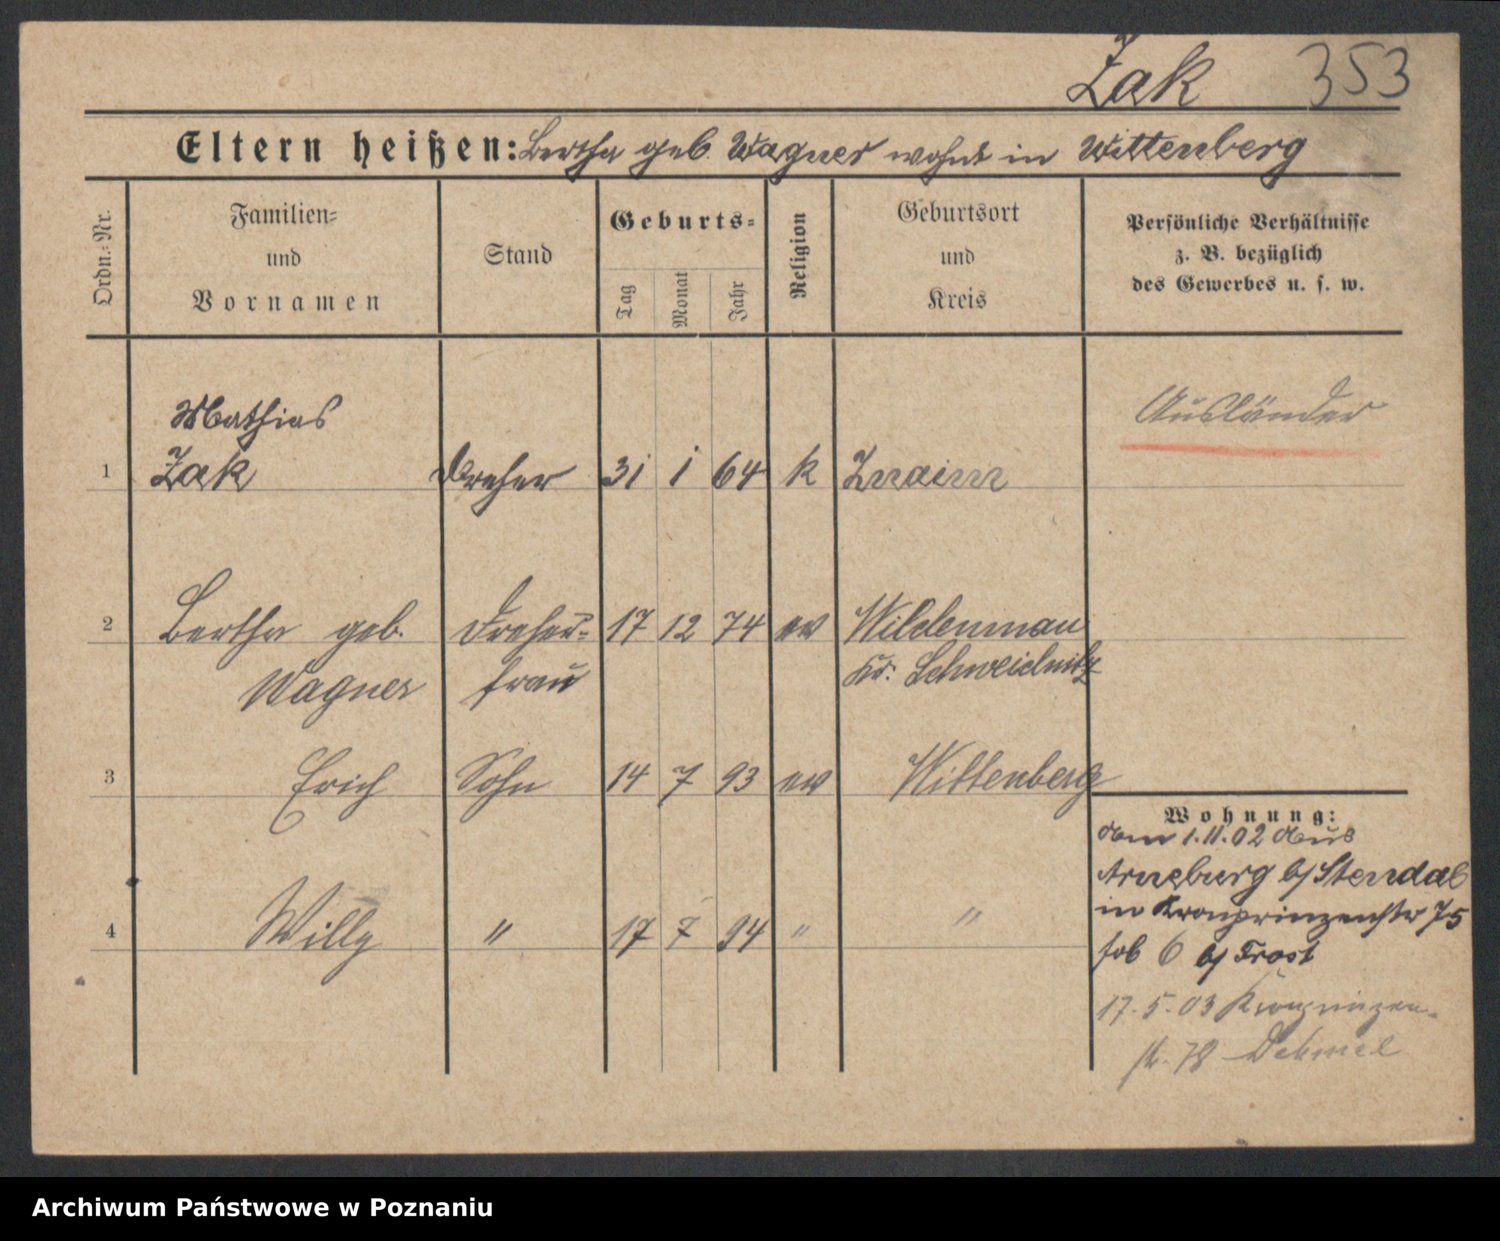 Zak 353
Eltern heißen: Bertha geb. Wagner wohnt in Wittenberg
Ordn.-Nr.
Familien- und Vornamen
Stand
Geburts-
Tag Monat Jahr
Religion
Geburtsort und Kreis
Persönliche Verhältnisse
z. B. bezüglich
des Gewerbes u. s. w.
Ausländer
Mathias
1 Zak Dreher 31 1 64 k Znaim
2 Bertha geb. Dreher- 17 12 74 ev Wildenmau
Wagner frau Kr. Schweidnitz
3 Erich Sohn 14 7 93 ev Wittenberg
4 Willy " 17 7 94 " "
Wohnung:
am 1.11.02 aus
Arneburg b/Stendal
in Kronprinzenstr 75
6 b/ Frost
17.5.03 Kronprinzen-
str. 78 Dehmel
Archiwum Państwowe w Poznaniu